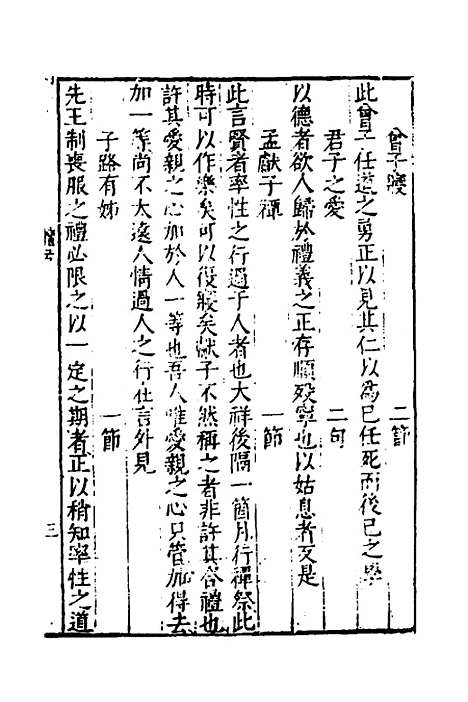 曾子寢 二節
此曾子任道之勇正以見其仁以為己任死而後已之學
君子之愛 二句
以德者欲人歸於禮義之正存順歿寧也以姑息者反是
孟獻子禫 一節
此言賢者率性之行過于人者也大祥後隔一箇月行禫祭此
時可以作樂矣可以復寢矣獻子不然稱之者非許其合禮也
許其愛親之心加於人一等也吾人唯愛親之心只管加得去
加一等尚不太遠人情過人之行在言外見
子路有姊 一節
先王制喪服之禮必限之以一定之期者正以稍知率性之道
檀弓 三